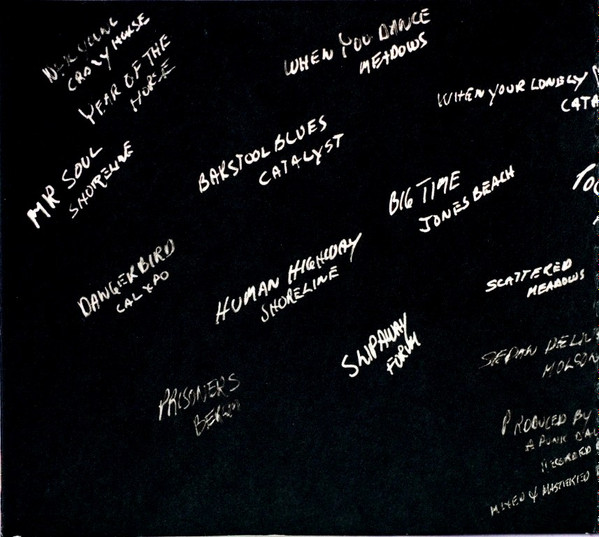 NEIL YOUNG
CRAZY HORSE
YEAR OF THE
HORSE
WHEN YOU DANCE
MEADOWS
WHEN YOUR LONELY
CATA
MR SOUL
SHORELINE
BARSTOOL BLUES
CATALYST
BIG TIME
JONES BEACH
TOO
DANGERBIRD
CAL XPO
HUMAN HIGHWAY
SHORELINE
SCATTERED
MEADOWS
SLIP AWAY
FORUM
SEDAN DELIV
MOLSON
PRISONERS
BERLIN
PRODUCED BY
A PUNK DAL
RECORDED
MIXED & MASTERED